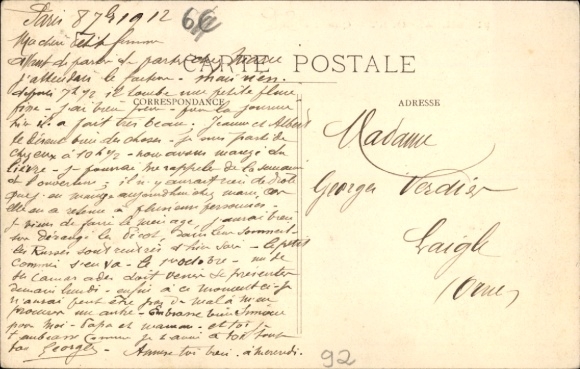 Paris 8 7bre 1912
Ma chère Petite femme
Avant de partir de
j'attendais le facteur - mais rien.
depuis 7h 1/2 il tombe une petite pluie
fine - j'ai bien peur - pour la journée
hier il a fait très beau. Jeanne et Albert
te disent bien des choses - je suis parti de
chez eux à 10h 1/2 - nous avons mangé du
lièvre - je pourrai me rappeler de la semaine
d'ouverture, il n'y aurait rien de drôle
que j'en mange aujourd'hui chez
elle en a retenu à plusieurs personnes -
je viens de faire le ménage, j'aurai bien
dérangé les dans leur sommeil -
les Russes sont rentrés hier soir - le petit
commis s'en va - le 1er octobre - un de
ses camarades doit venir se présenter
demain lundi - enfin à ce moment-ci je
n'aurai peut être pas de mal à m'en
procurer un autre - Embrasse bien Simone
pour moi - Papa et maman - et toi je
t'embrasse comme je t'aime à toi tout
Georges - Amuse toi bien - à mercredi.
6
CARTE POSTALE
CORRESPONDANCE
ADRESSE
Madame
Georges Verdier
Laigle
Orne
92